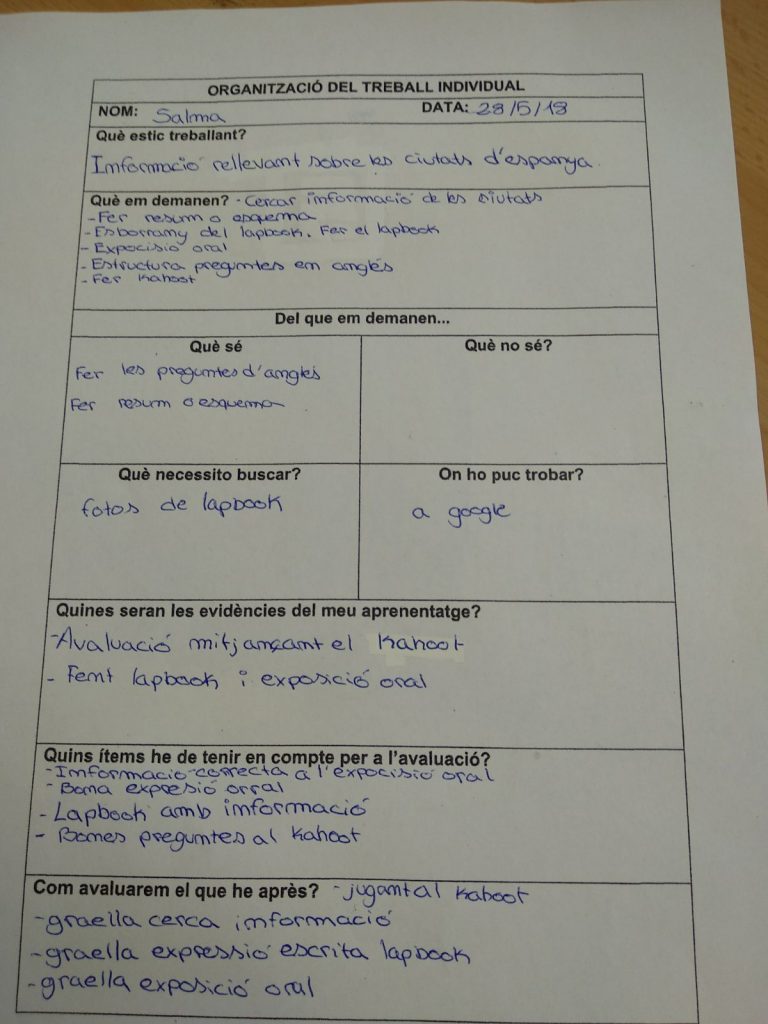 ORGANITZACIÓ DEL TREBALL INDIVIDUAL
NOM: Salma DATA: 28/5/18
Què estic treballant?
Informació rellevant sobre les ciutats d'espanya.
Què em demanen? - Cercar informació de les ciutats
- Fer resum o esquema
- Esborrany del lapbook. Fer el lapbook
- Expocisió oral
- Estructura preguntes em anglés
- Fer kahoot
Del que em demanen...
Què sé
Fer les preguntes d'anglés
Fer resum o esquema
Què no sé?
Què necessito buscar?
fotos de lapbook
On ho puc trobar?
a google
Quines seran les evidències del meu aprenentatge?
- Avaluació mitjançamt el Kahoot
- Femt lapbook i exposició oral
Quins ítems he de tenir en compte per a l'avaluació?
- Informacio correcta a l'expocisió oral
- Bona expresió orral
- Lapbook amb informació
- Bones preguntes al Kahoot
Com avaluarem el que he après? - jugamt al kahoot
- graella cerca informació
- graella expressió escrita lapbook
- graella exposició oral